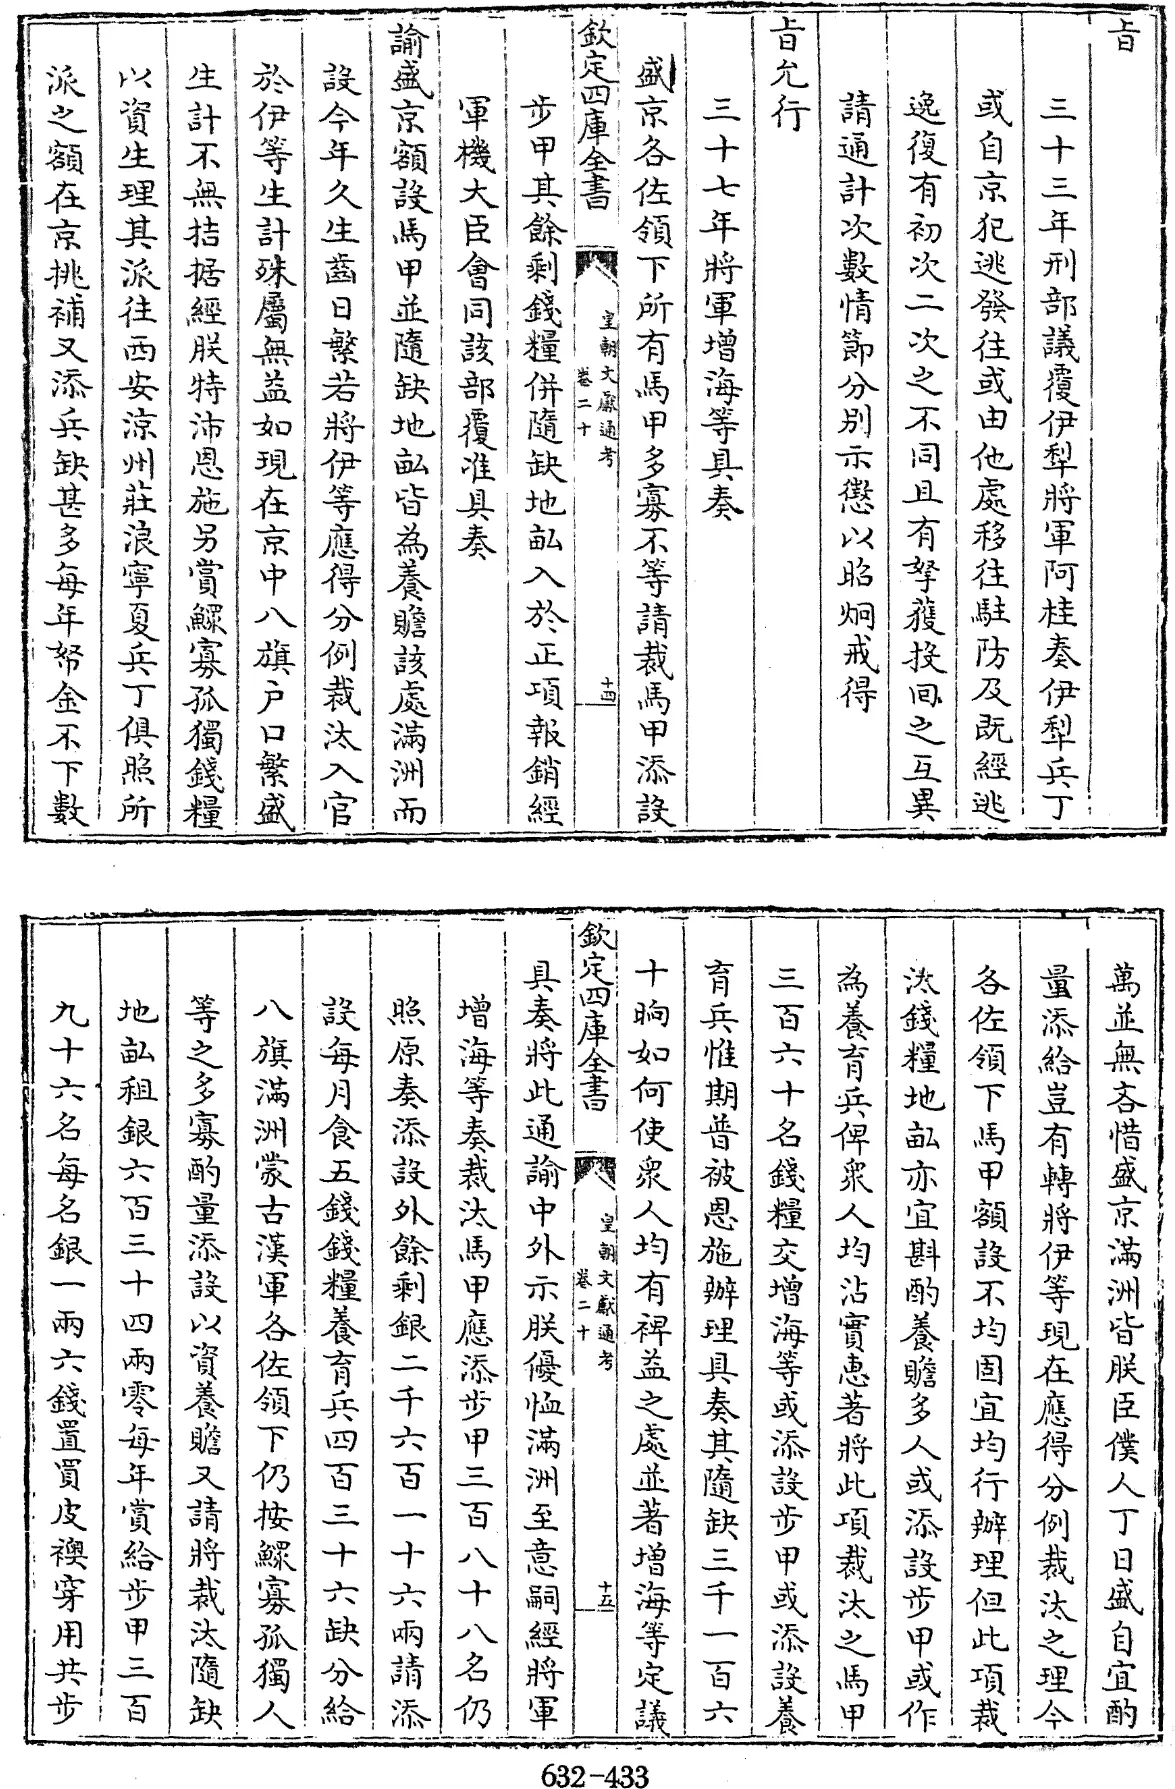 旨
三十三年刑部議覆伊犁將軍阿桂奏伊犁兵丁
或自京犯逃發往或由他處移往駐防及既經逃
逸復有初次二次之不同且有拏獲投囘之互異
請通計次數情節分别示懲以昭炯戒得
旨允行
三十七年將軍增海等具奏
盛京各佐領下所有馬甲多寡不等請裁馬甲添設
欽定四庫全書
皇朝文獻通考
卷二十
十四
步甲其餘剩錢糧併隨缺地畝入於正項報銷經
軍機大臣會同該部覆准具奏
諭盛京額設馬甲並隨缺地畝皆為養贍該處滿洲而
設今年久生齒日繁若將伊等應得分例裁汰入官
於伊等生計殊屬無益如現在京中八旗户口繁盛
生計不無拮据經朕特沛恩施另賞鰥寡孤獨錢糧
以資生理其派往西安涼州莊浪寧夏兵丁俱照所
派之額在京挑補又添兵缺甚多每年帑金不下數
萬並無吝惜盛京滿洲皆朕臣僕人丁日盛自宜酌
量添給豈有轉將伊等現在應得分例裁汰之理今
各佐領下馬甲額設不均固宜均行辦理但此項裁
汰錢糧地畝亦宜斟酌養贍多人或添設步甲或作
為養育兵俾衆人均沾實惠著將此項裁汰之馬甲
三百六十名錢糧交增海等或添設步甲或添設養
育兵惟期普被恩施辦理具奏其隨缺三千一百六
十晌如何使衆人均有裨益之處並著增海等定議
欽定四庫全書
皇朝文獻通考
卷二十
十五
具奏將此通諭中外示朕優恤滿洲至意嗣經將軍
增海等奏裁汰馬甲應添步甲三百八十八名仍
照原奏添設外餘剩銀二千六百一十六兩請添
設每月食五錢錢糧養育兵四百三十六缺分給
八旗滿洲蒙古漢軍各佐領下仍按鰥寡孤獨人
等之多寡酌量添設以資養贍又請將裁汰隨缺
地畝租銀六百三十四兩零每年賞給步甲三百
九十六名每名銀一兩六錢置買皮襖穿用共步
632-433